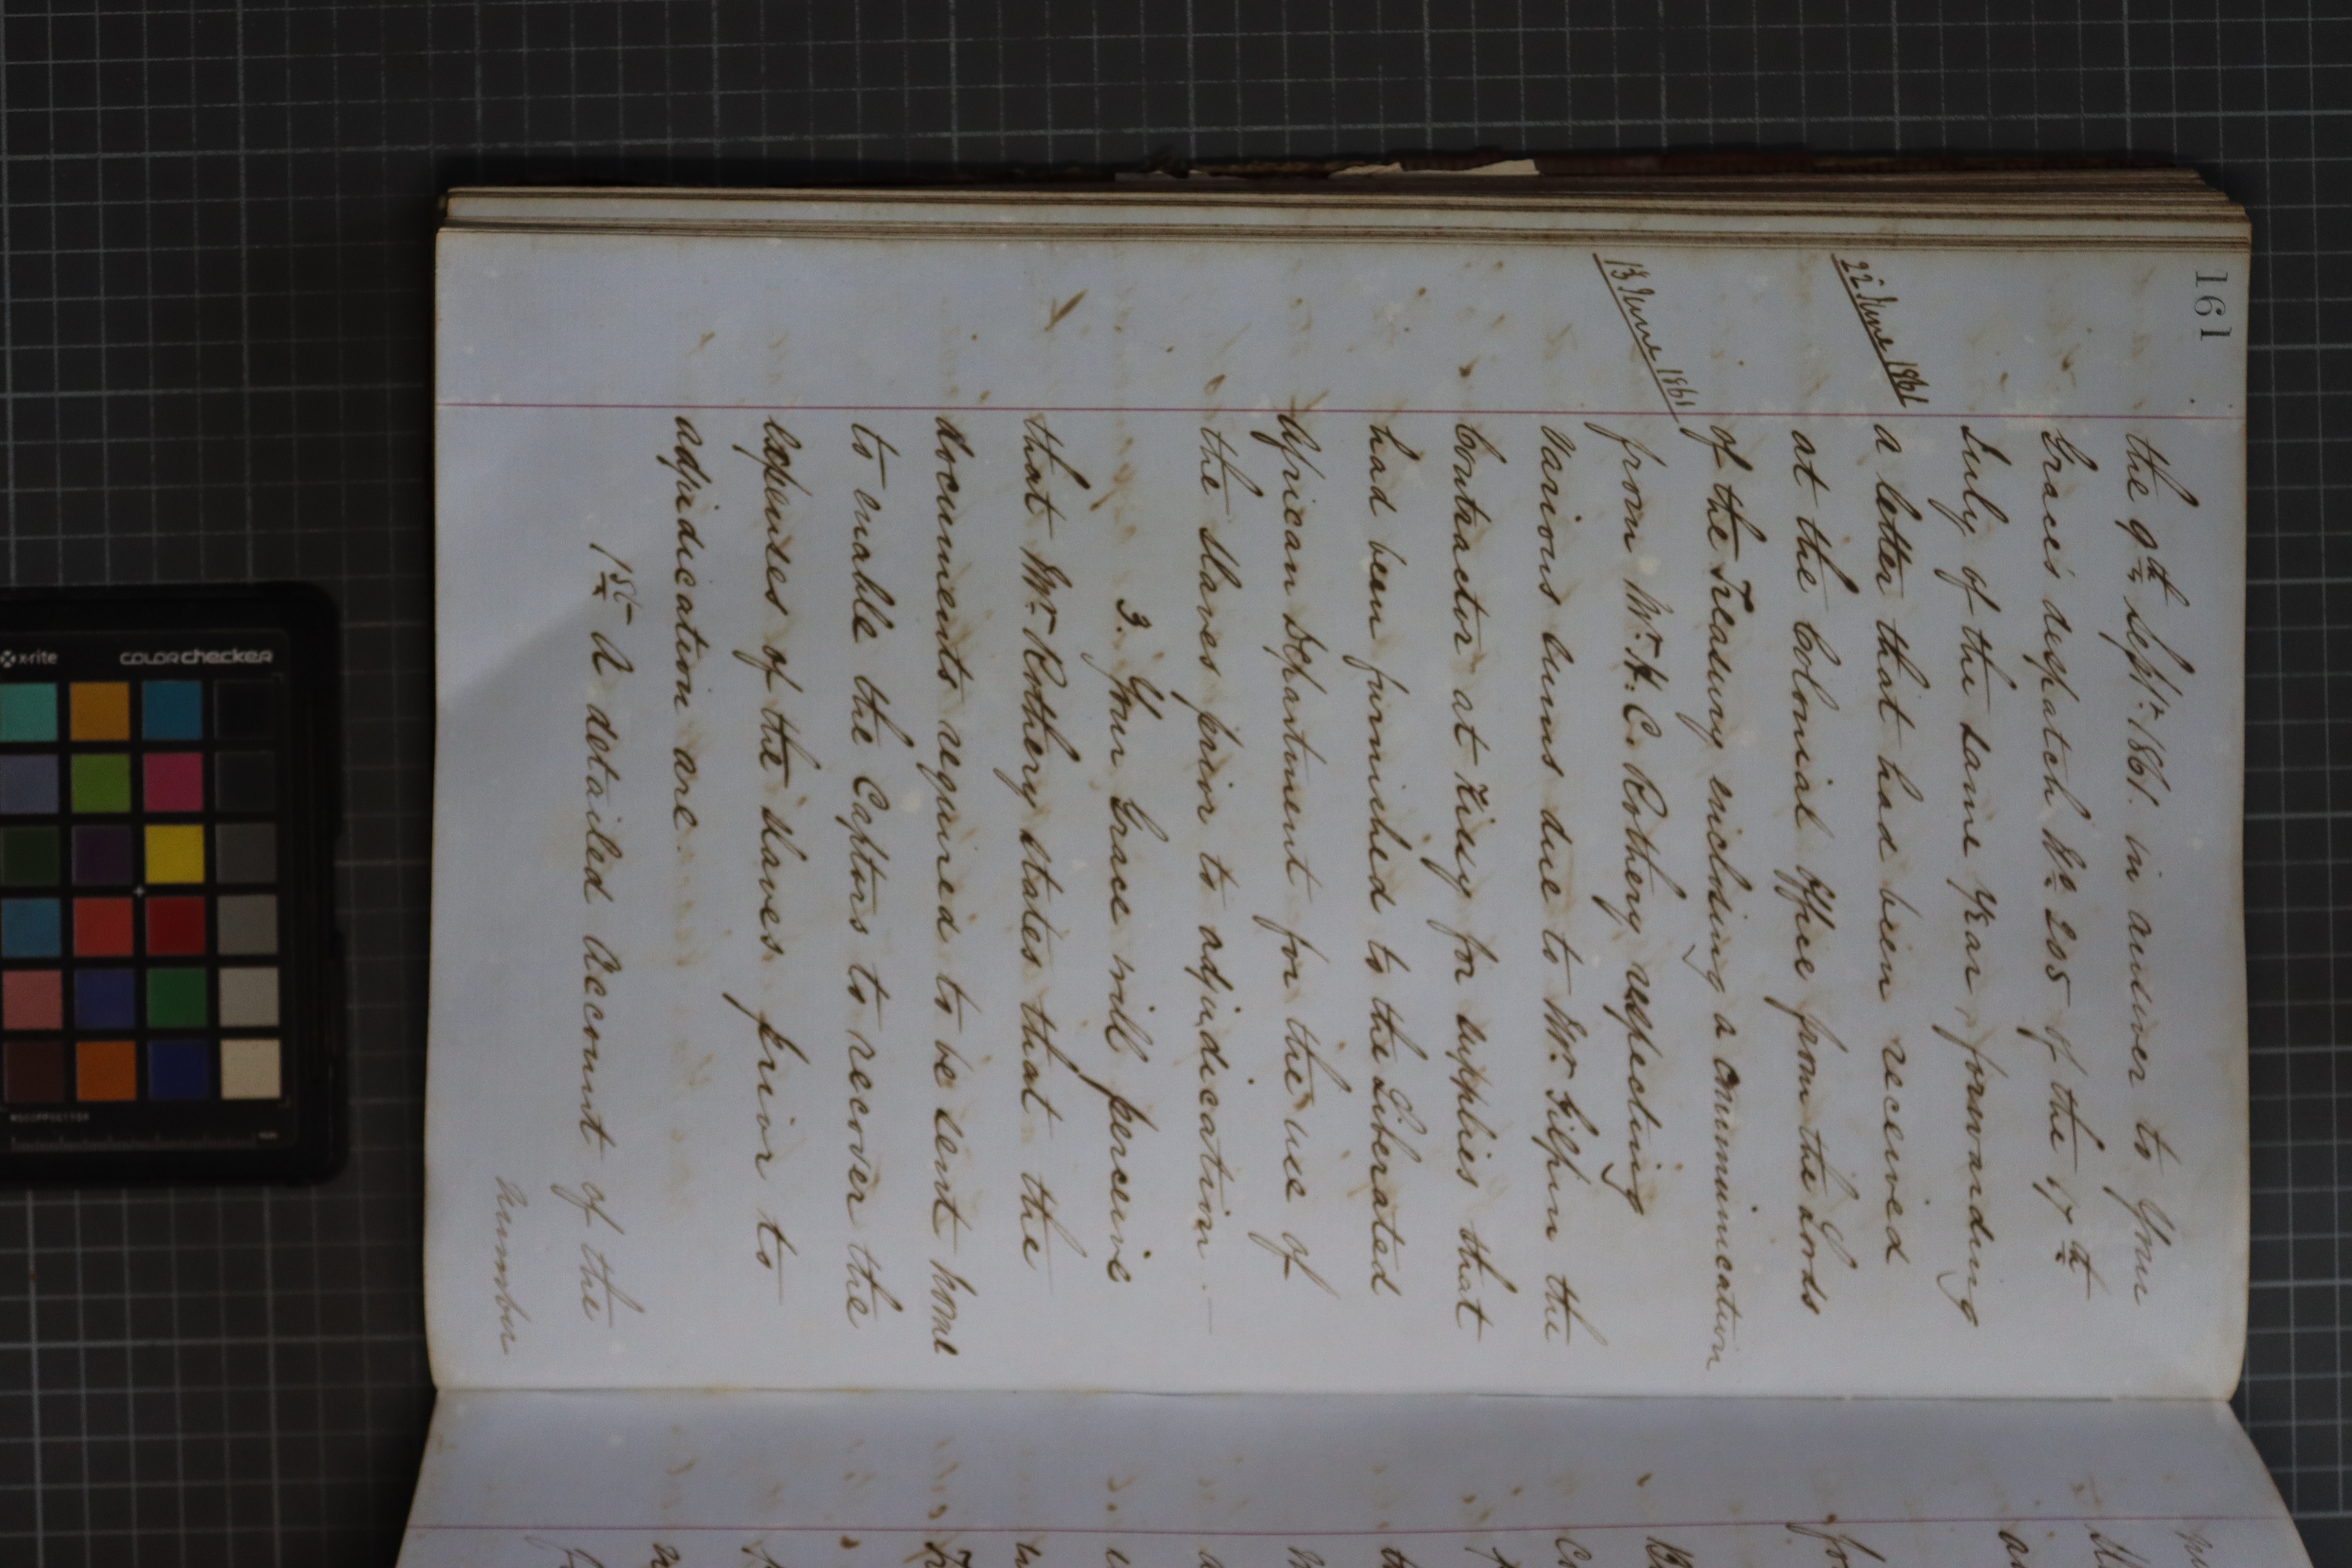 161
the 9th Sept. 1861. in answer to Your
Grace's despatch No. 205 of the 17th
July of the same year, forwarding
22 June 1861
a letter that had been received
at the Colonial Office from the Lords
of the Treasury enclosing a communication
13 June 1861
from Mr. H. C. Rothery respecting
various sums due to Mr. Gilpin the
Contractor at Kissy for supplies that
had been furnished to the Liberated
African Department for the use of
the slaves prior to adjudication.—
3. Your Grace will perceive
that Mr. Rothery states that the
documents required to be sent home
to enable the Captors to recover the
expenses of the slaves prior to
adjudication are.
1st A detailed Account of the
number
x-rite
COLORchecker